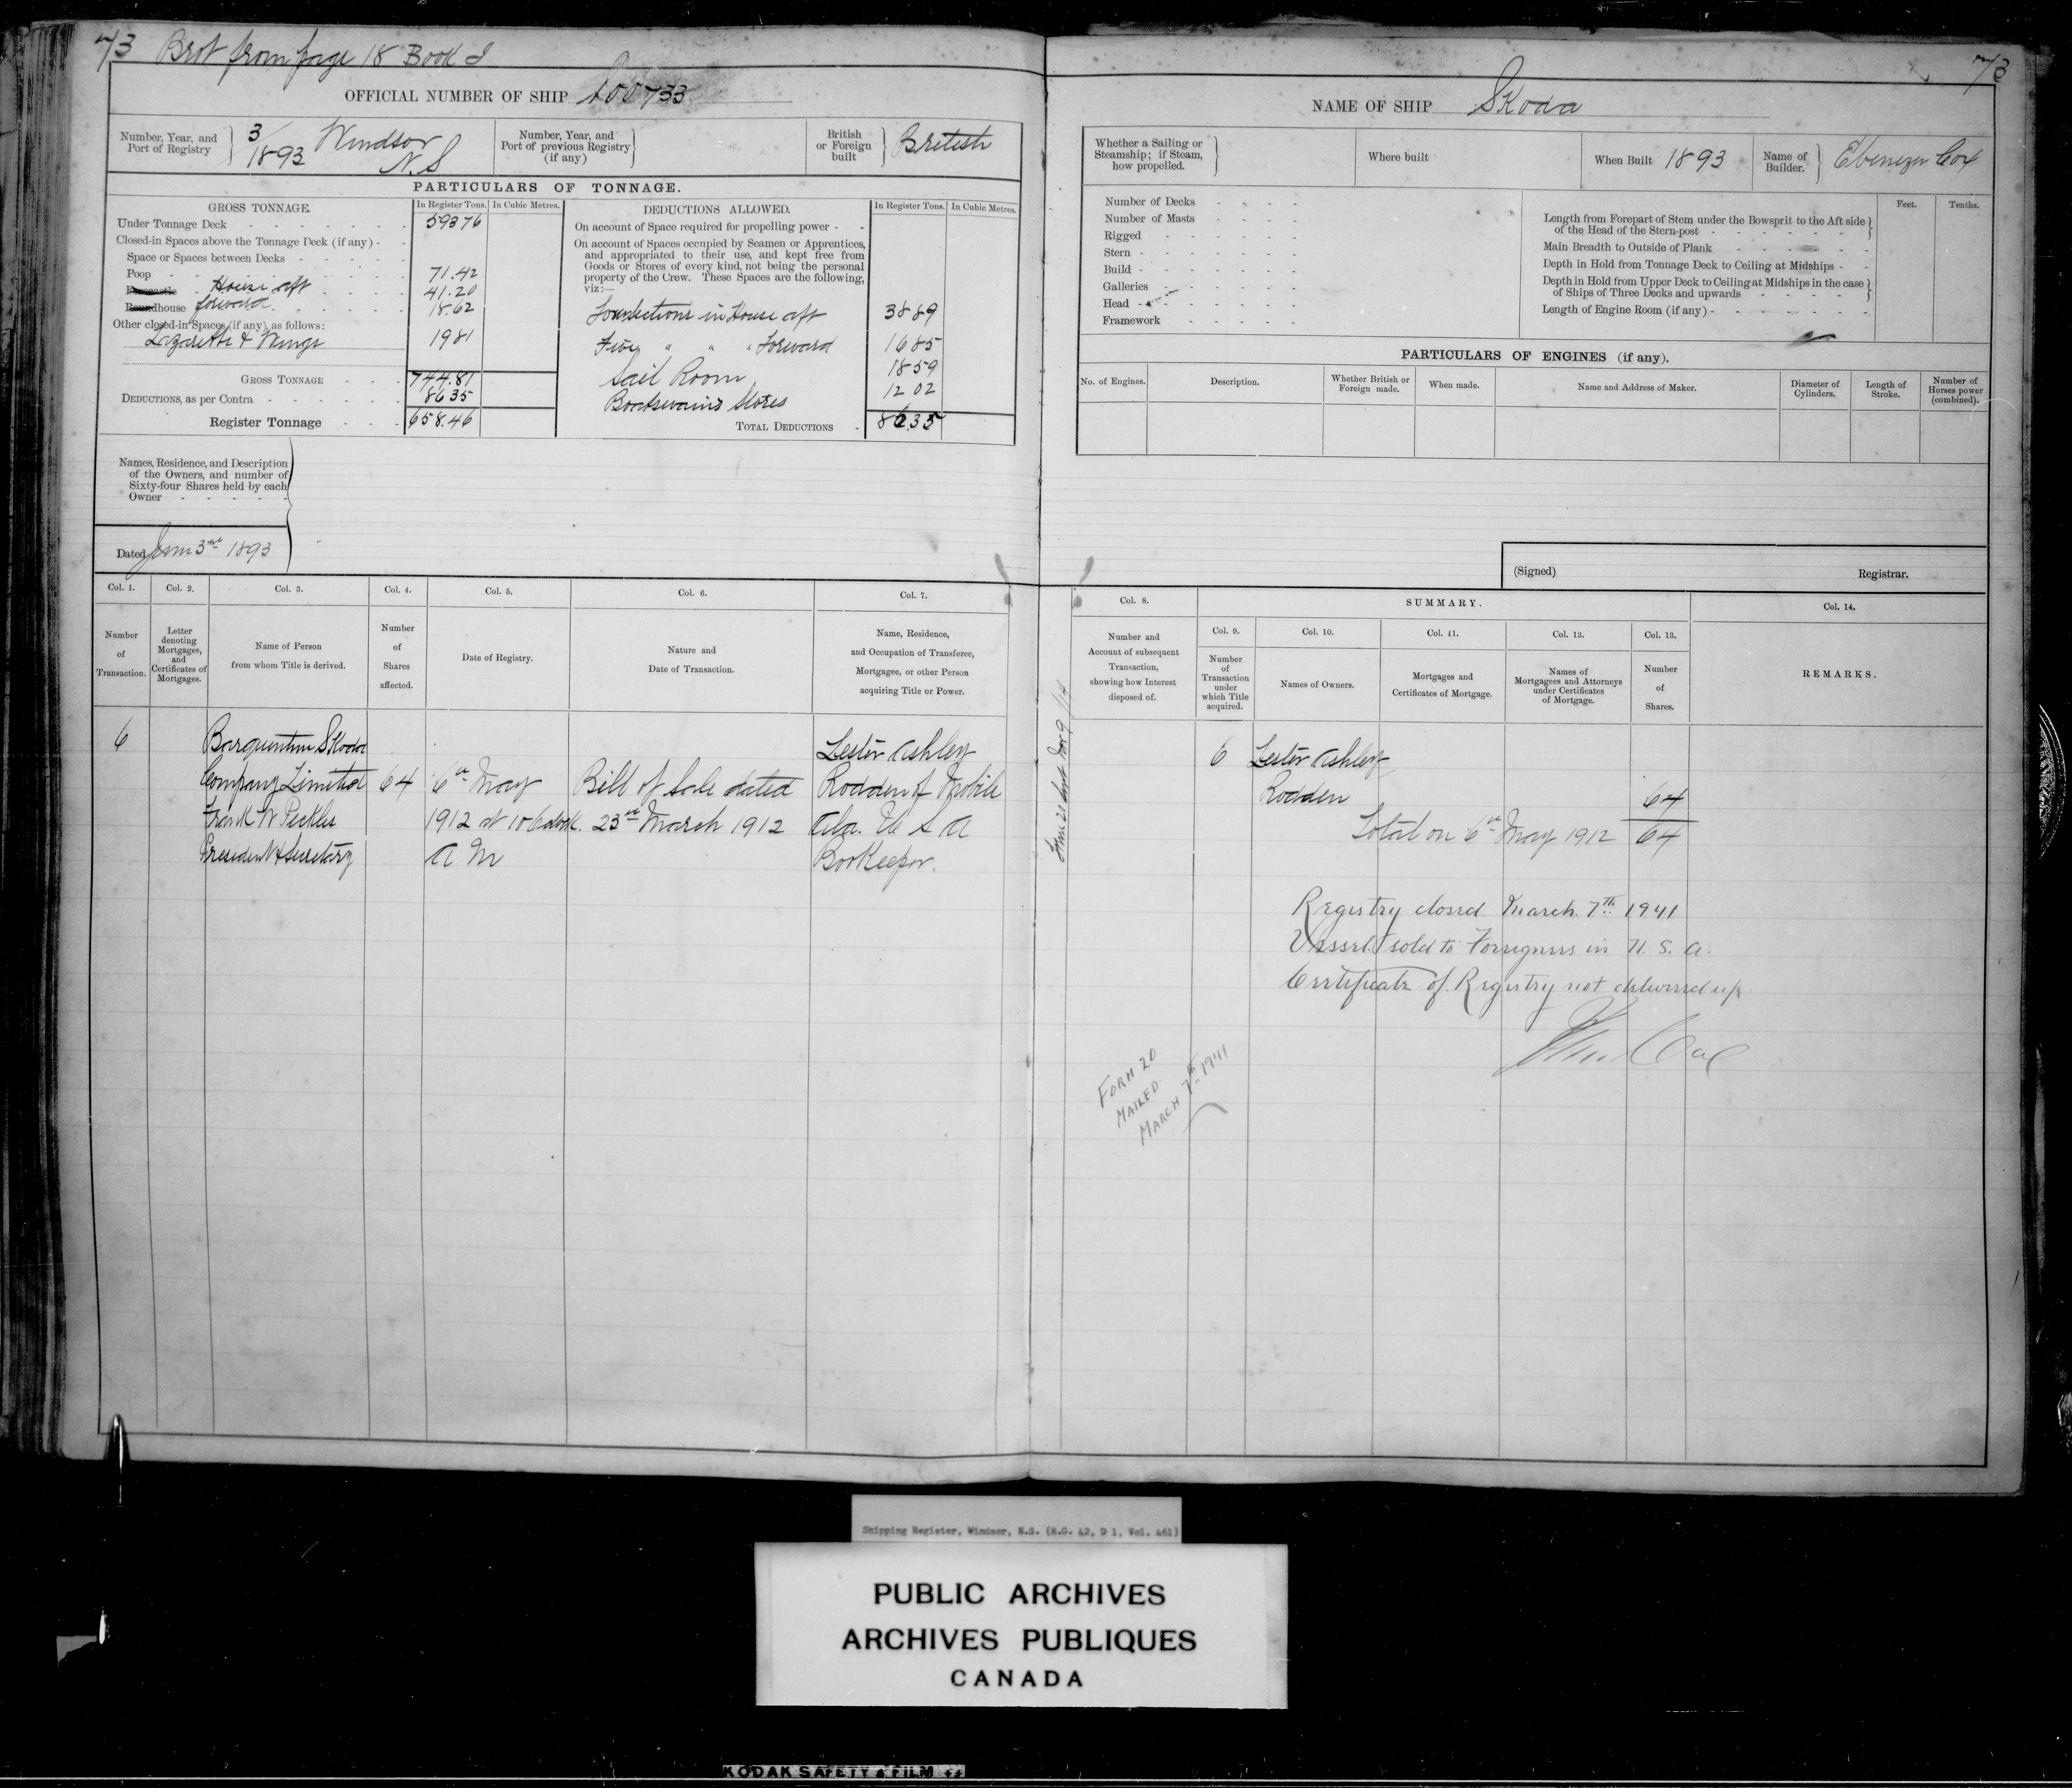 73 Brot from page 18 Book I
OFFICIAL NUMBER OF SHIP 100733
Number, Year, and Port of Registry
3/1893 Windsor N.S
Number, Year, and Port of previous Registry (if any)
British or Foreign built
British
PARTICULARS OF TONNAGE.
GROSS TONNAGE.
In Register Tons.
In Cubic Metres.
Under Tonnage Deck 593 76
Closed-in Spaces above the Tonnage Deck (if any)
Space or Spaces between Decks
Poop 71.42
House aft 41.20
Roundhouse forward 18.62
Other closed-in Spaces (if any), as follows:
Lazarette & Wings 19 81
GROSS TONNAGE 744.81
DEDUCTIONS, as per Contra 86 35
Register Tonnage 658.46
DEDUCTIONS ALLOWED.
In Register Tons.
In Cubic Metres.
On account of Space required for propelling power
On account of Spaces occupied by Seamen or Apprentices,
and appropriated to their use, and kept free from
Goods or Stores of every kind, not being the personal
property of the Crew. These Spaces are the following,
viz:—
in House aft 38 89
" " " Forward 16 85
Sail Room 18 59
Boatswains Stores 12 02
TOTAL DEDUCTIONS 86.35
Names, Residence, and Description
of the Owners, and number of
Sixty-four Shares held by each
Owner
Dated 3rd 1893
Col. 1.
Number of Transaction.
Col. 2.
Letter denoting Mortgages, and Certificates of Mortgages.
Col. 3.
Name of Person from whom Title is derived.
Col. 4.
Number of Shares affected.
Col. 5.
Date of Registry.
Col. 6.
Nature and Date of Transaction.
Col. 7.
Name, Residence, and Occupation of Transferee, Mortgagee, or other Person acquiring Title or Power.
6 Barquentine Skoda Lester Ashley
Company Limited 64 6th May Bill of Sale dated Rodden of Mobile
Frank W 1912 at 10 oclock. 23rd March 1912 Ala. U S A
President & Secretary A M BooKeeper.
73
NAME OF SHIP Skoda
Whether a Sailing or Steamship; if Steam, how propelled.
Where built
When Built 1893
Name of Builder.
Ebenezer Cox
Number of Decks
Number of Masts
Rigged
Stern
Build
Galleries
Head
Framework
Feet.
Tenths.
Length from Forepart of Stem under the Bowsprit to the Aft side
of the Head of the Stern-post
Main Breadth to Outside of Plank
Depth in Hold from Tonnage Deck to Ceiling at Midships
Depth in Hold from Upper Deck to Ceiling at Midships in the case
of Ships of Three Decks and upwards
Length of Engine Room (if any)
PARTICULARS OF ENGINES (if any).
No. of Engines.
Description.
Whether British or Foreign made.
When made.
Name and Address of Maker.
Diameter of Cylinders.
Length of Stroke.
Number of Horses power (combined).
(Signed) Registrar.
Col. 8.
Number and Account of subsequent Transaction, showing how Interest disposed of.
SUMMARY.
Col. 9.
Number of Transaction under which Title acquired.
Col. 10.
Names of Owners.
Col. 11.
Mortgages and Certificates of Mortgage.
Col. 12.
Names of Mortgagees and Attorneys under Certificates of Mortgage.
Col. 13.
Number of Shares.
Col. 14.
REMARKS.
6 Lester Ashley
Rodden 64
Total on 6th May 1912 64
Registry closed March 7th 1941
Vessel sold to Foreigners in U. S. A.
Certificate of Registry not delivered up
FORM 20
MAILED
MARCH 7th 1941
Shipping Register, Windsor, N.S. (R.G. 42, D 1, Vol. 461)
PUBLIC ARCHIVES
ARCHIVES PUBLIQUES
CANADA
KODAK SAFETY FILM